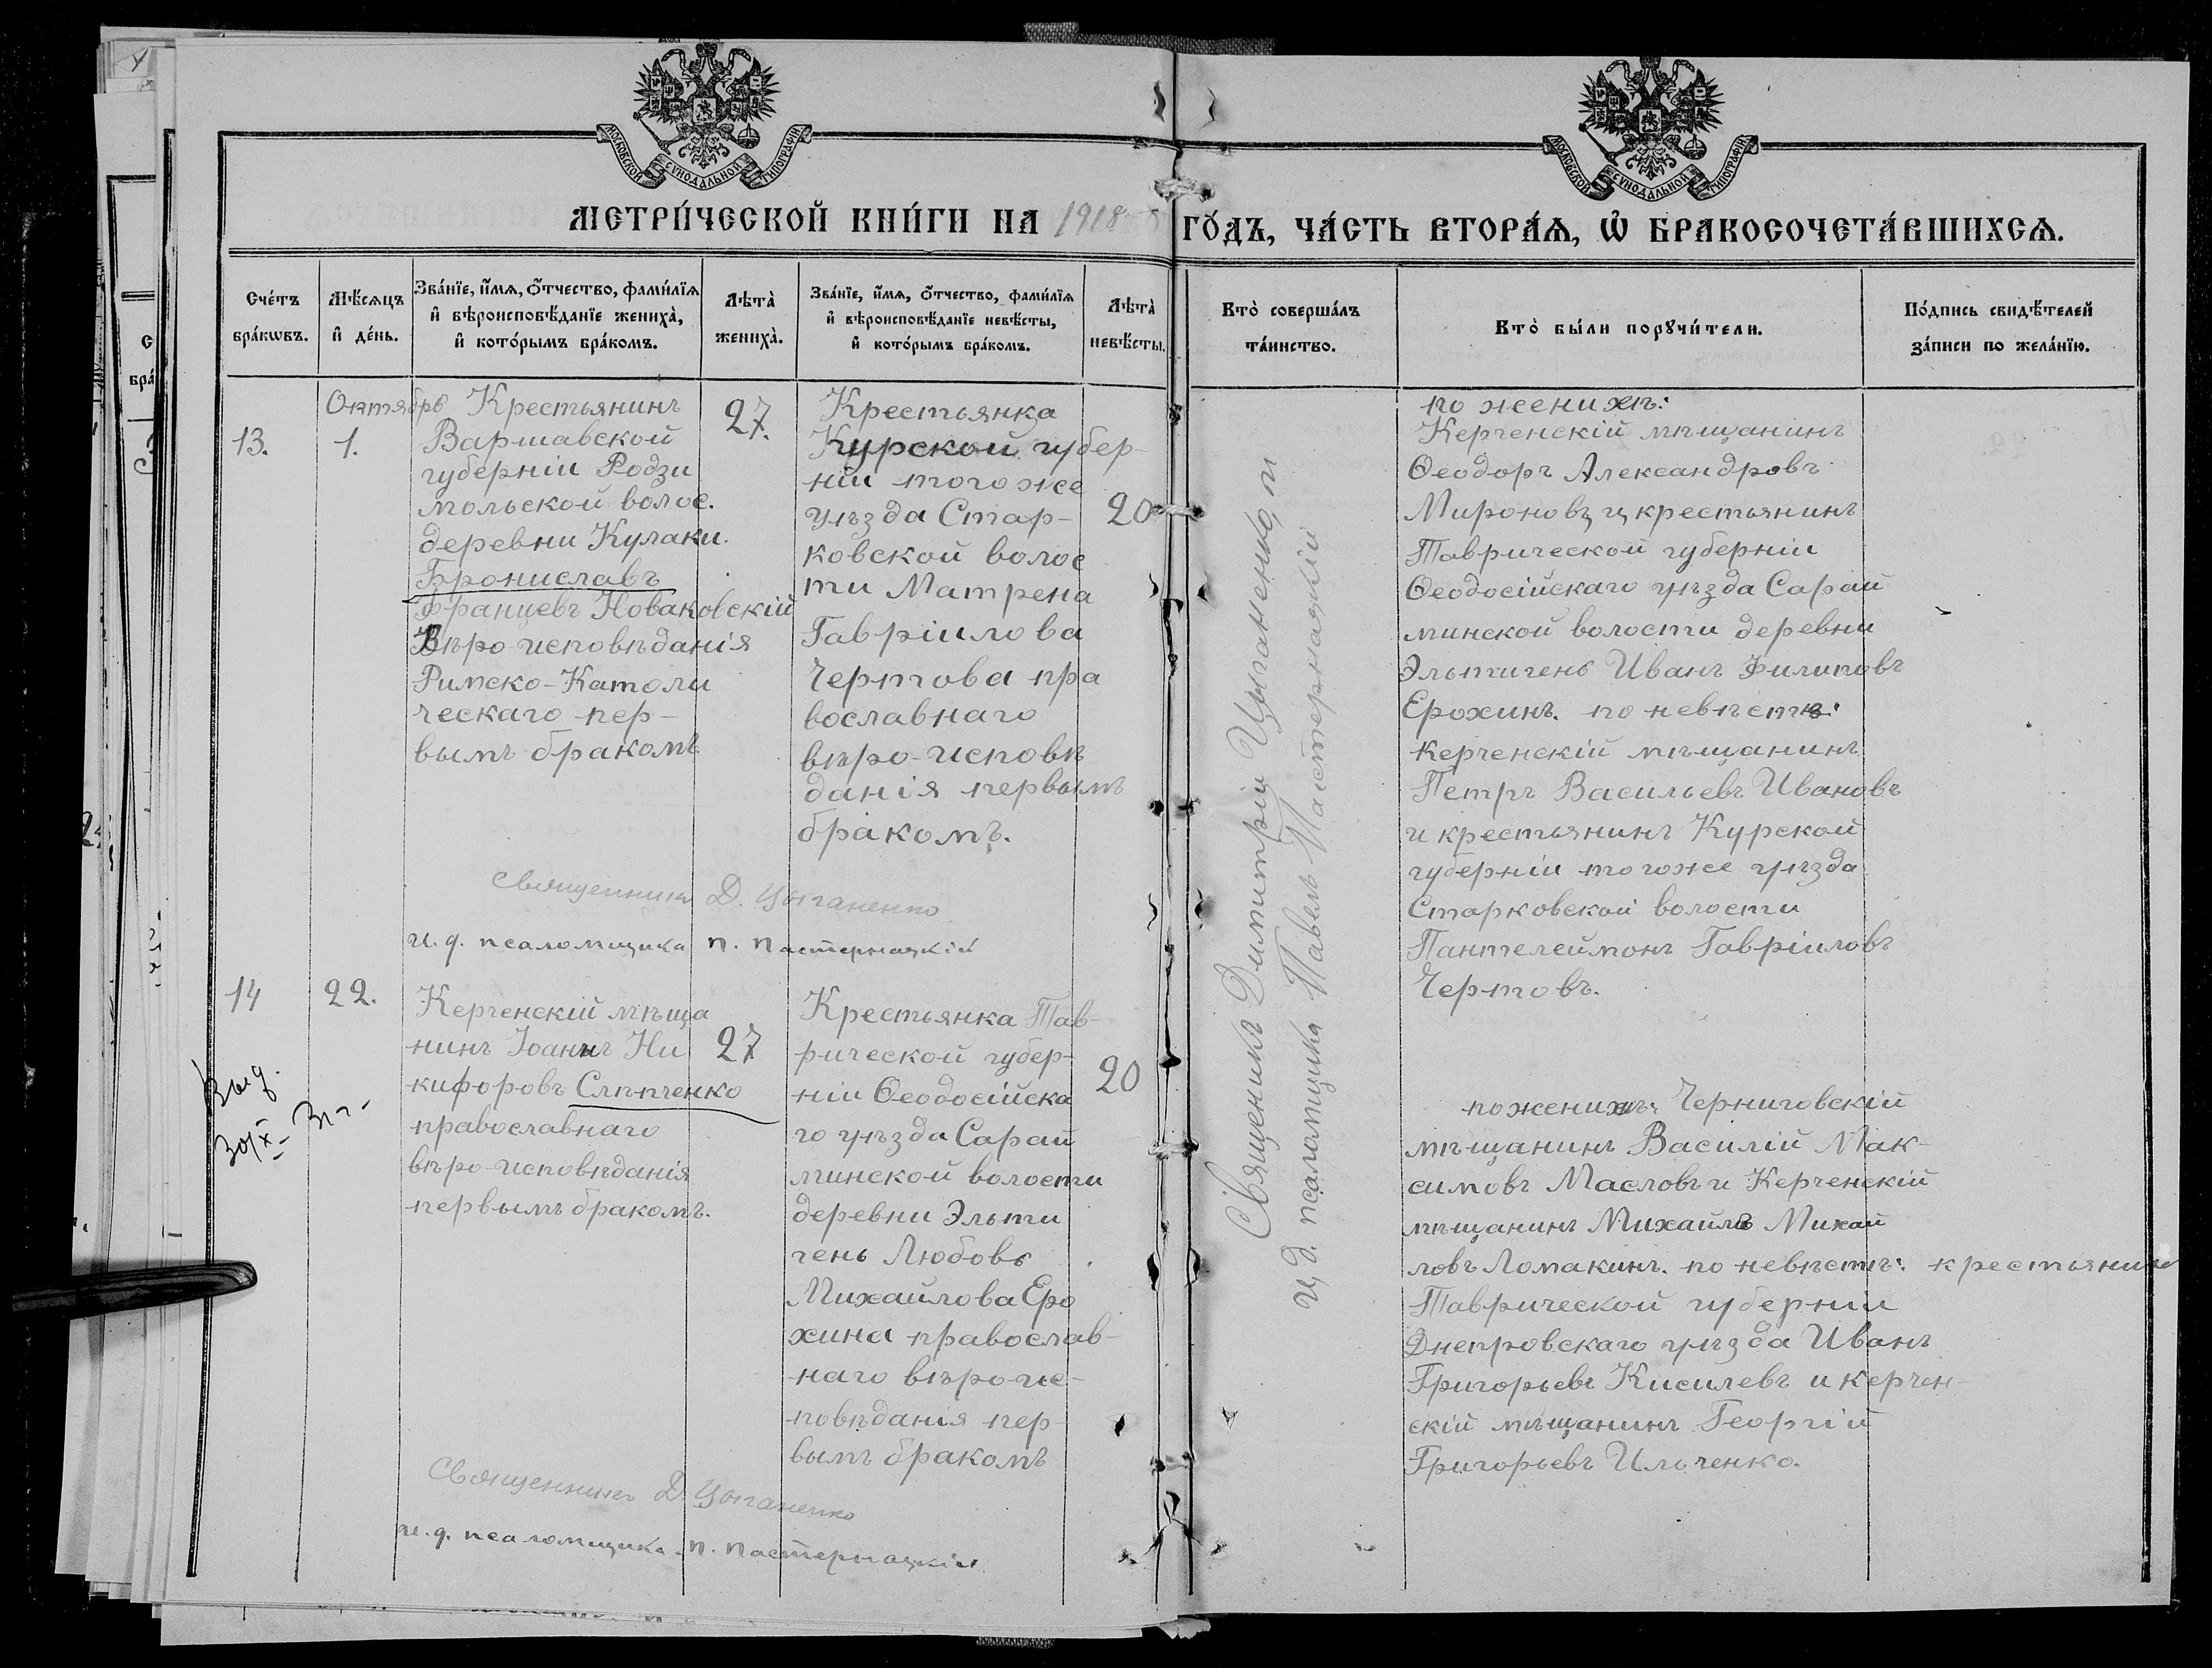 МОСКОВСКОЙ СѴНОДАЛЬНОЙ ТИПОГРАФІИ
МОСКОВСКОЙ СѴНОДАЛЬНОЙ ТИПОГРАФІИ
МЕТРИ́ЧЕСКОЙ КНИ́ГИ НА 1918 ГО́ДЪ, ЧА́СТЬ ВТОРА́Ѧ, Ѽ БРАКОСОЧЕТА́ВШИХСѦ.
Сче́тъ бра́кѡвъ.
Мѣ́сяцъ и҆ де́нь.
Зва́нїе, и҆́мѧ, ѻ҆́тчество, фами́лїѧ и҆ вѣроисповѣ́данїе жениха̀, и҆ кото́рымъ бра́комъ.
Лѣта̀ жениха̀.
Зва́нїе, и҆́мѧ, ѻ҆́тчество, фами́лїѧ и҆ вѣроисповѣ́данїе невѣ́сты, и҆ кото́рымъ бра́комъ.
Лѣта̀ невѣ́сты.
Кто̀ соверша́лъ та́инство.
Кто̀ бы́ли порꙋчи́тели.
По́дпись свидѣ́телей за́писи по жела́нїю.
13.
Октябрь
1.
Крестьянинъ
Варшавской
губерніи Родзи
мольской волос.
деревни Кулаки.
Брониславъ
Францевъ Новаковскій
Вѣро-исповѣданія
Римско-Католи
ческаго пер-
вымъ бракомъ
27.
Крестьянка
Курской губер-
ніи того же
уѣзда Стар-
ковской волос
ти Матрена
Гавріилова
Чертова пра
вославнаго
вѣро-исповѣ
данія первымъ
бракомъ.
20
Священникъ Димитрій Цыганенко, и
И. д. псаломщика Павелъ Пастернацкій
по женихѣ:
Керченскій мѣщанинъ
Ѳеодоръ Александровъ
Мироновъ и крестьянинъ
Таврической губерніи
Ѳеодосійскаго уѣзда Сарай
минской волости деревни
Эльтигень Иванъ Филиповъ
Ерохинъ. по невѣстѣ:
Керченскій мѣщанинъ
Петръ Васильевъ Ивановъ
и крестьянинъ Курской
губерніи того же уѣзда
Старковской волости
Пантелеймонъ Гавріиловъ
Чертовъ.
Священникъ Д. Цыганенко
и. д. псаломщика П. Пастернацкій
14
22.
Керченскій мѣща
нинъ Іоаннъ Ни
кифоровъ Слѣпченко
православнаго
вѣро-исповѣданія
первымъ бракомъ.
27
Крестьянка Тав-
рической губер-
ніи Ѳеодосійска
го уѣзда Сарай
минской волости
деревни Эльти
гень Любовь
Михайлова Еро
хина православ-
наго вѣро-ис-
повѣданія пер-
вымъ бракомъ
20
по женихѣ: Черниговскій
мѣщанинъ Василій Мак-
симовъ Масловъ и Керченскій
мѣщанинъ Михаилъ Михай
ловъ Ломакинъ. по невѣстѣ: крестьянинъ
Таврической губерніи
Днепровскаго уѣзда Иванъ
Григорьевъ Кисилевъ и керчен-
скій мѣщанинъ Георгій
Григорьевъ Ильченко.
Священникъ Д. Цыганенко
и. д. псаломщика П. Пастернацкій